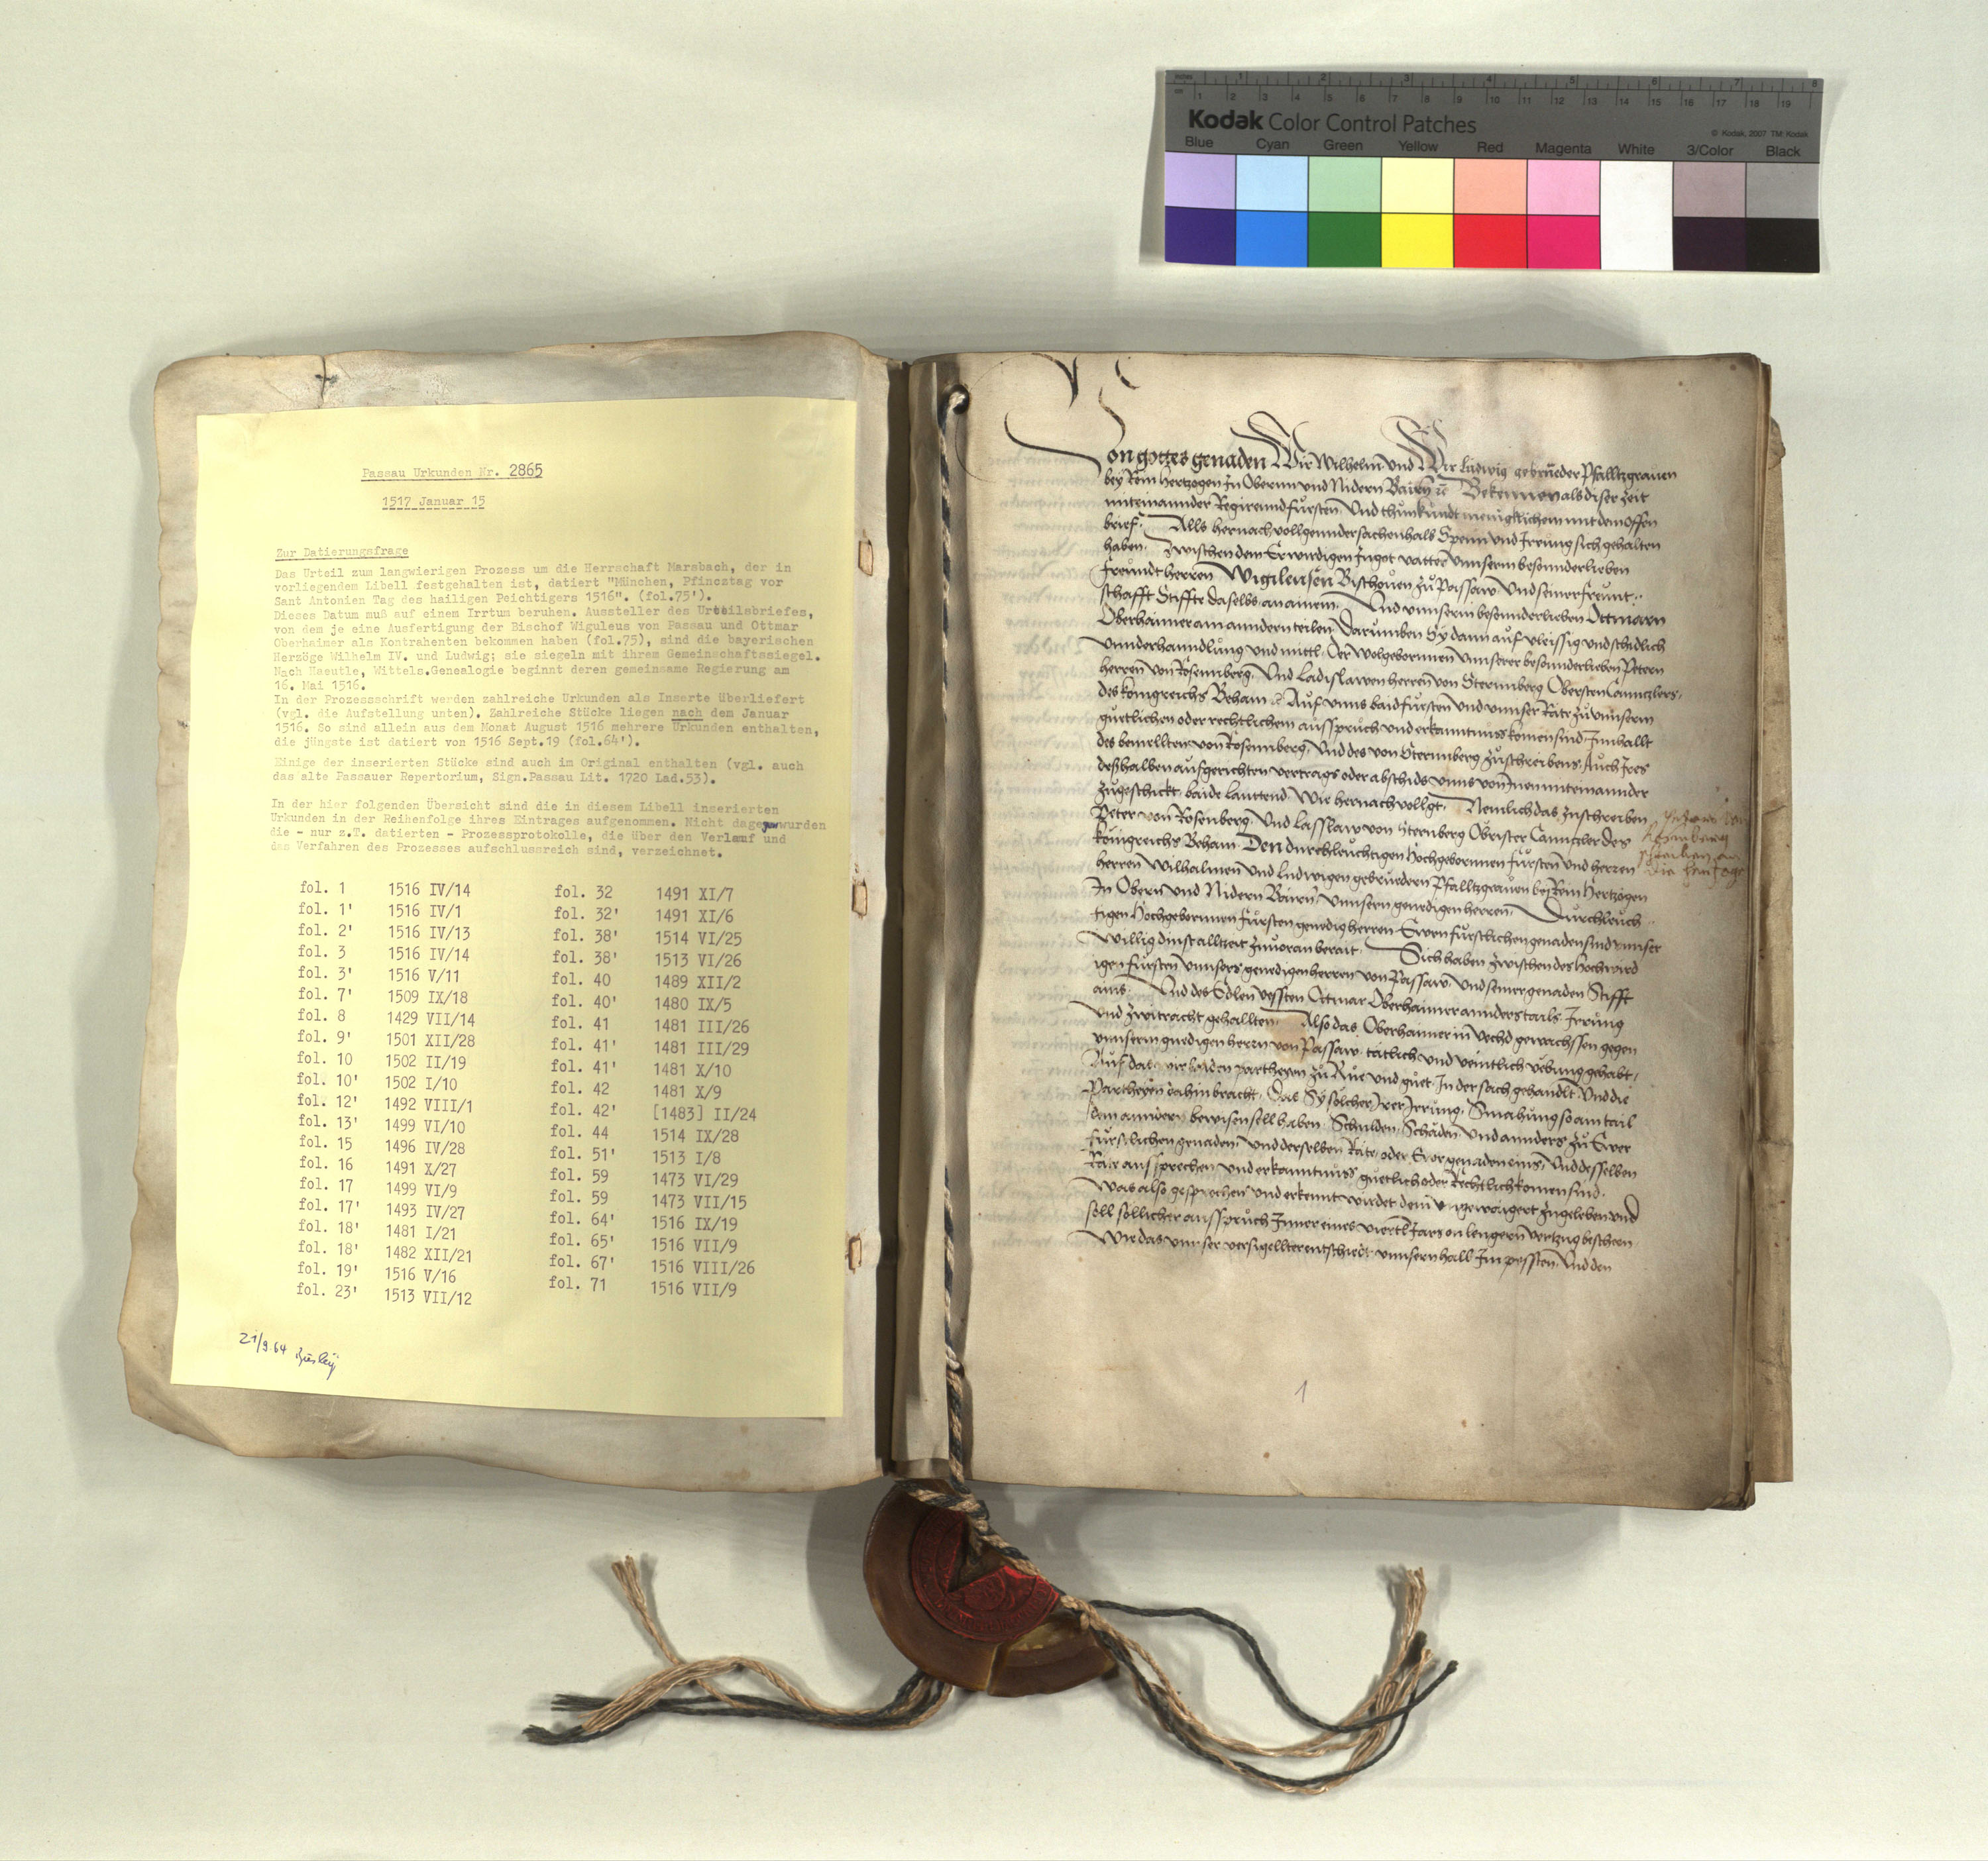 Kodak Color Control Patches
© Kodak, 2007 TM: Kodak
Blue Cyan Green Yellow Red Magenta White 3/Color Black
Passau Urkunden Nr. 2865
1517 Januar 15
Zur Datierungsfrage
Das Urteil zum langwierigen Prozess um die Herrschaft Marsbach, der in
vorliegendem Libell festgehalten ist, datiert "München, Pfincztag vor
Sant Antonien Tag des hailigen Peichtigers 1516". (fol.75').
Dieses Datum muß auf einem Irrtum beruhen. Aussteller des Urteilsbriefes,
von dem je eine Ausfertigung der Bischof Wiguleus von Passau und Ottmar
Oberhaimer als Kontrahenten bekommen haben (fol.75), sind die bayerischen
Herzöge Wilhelm IV. und Ludwig; sie siegeln mit ihrem Gemeinschaftssiegel.
Nach Haeutle, Wittels.Genealogie beginnt deren gemeinsame Regierung am
16. Mai 1516.
In der Prozessschrift werden zahlreiche Urkunden als Inserte überliefert
(vgl. die Aufstellung unten). Zahlreiche Stücke liegen nach dem Januar
1516. So sind allein aus dem Monat August 1516 mehrere Urkunden enthalten,
die jüngste ist datiert von 1516 Sept.19 (fol.64').
Einige der inserierten Stücke sind auch im Original enthalten (vgl. auch
das alte Passauer Repertorium, Sign.Passau Lit. 1720 Lad.53).
In der hier folgenden Übersicht sind die in diesem Libell inserierten
Urkunden in der Reihenfolge ihres Eintrages aufgenommen. Nicht dagegen wurden
die - nur z.T. datierten - Prozessprotokolle, die über den Verlauf und
das Verfahren des Prozesses aufschlussreich sind, verzeichnet.
fol. 1 1516 IV/14
fol. 1' 1516 IV/1
fol. 2' 1516 IV/13
fol. 3 1516 IV/14
fol. 3' 1516 V/11
fol. 7' 1509 IX/18
fol. 8 1429 VII/14
fol. 9' 1501 XII/28
fol. 10 1502 II/19
fol. 10' 1502 I/10
fol. 12' 1492 VIII/1
fol. 13' 1499 VI/10
fol. 15 1496 IV/28
fol. 16 1491 X/27
fol. 17 1499 VI/9
fol. 17' 1493 IV/27
fol. 18' 1481 I/21
fol. 18' 1482 XII/21
fol. 19' 1516 V/16
fol. 23' 1513 VII/12
fol. 32 1491 XI/7
fol. 32' 1491 XI/6
fol. 38' 1514 VI/25
fol. 38' 1513 VI/26
fol. 40 1489 XII/2
fol. 40' 1480 IX/5
fol. 41 1481 III/26
fol. 41' 1481 III/29
fol. 41' 1481 X/10
fol. 42 1481 X/9
fol. 42' [1483] II/24
fol. 44 1514 IX/28
fol. 51' 1513 I/8
fol. 59 1473 VI/29
fol. 59 1473 VII/15
fol. 64' 1516 IX/19
fol. 65' 1516 VII/9
fol. 67' 1516 VIII/26
fol. 71 1516 VII/9
21/9.64
Von gottes genaden Wir Wilhelm und Wir Ludwig gebrueder Pfalltzgrauen
bey Rein Hertzogen In Obernn und Nidern Bairn Bekennen als diser Zeit
miteinannder Regirennd fürsten Und thun kundt menigklichem mit dem offen
brief Alls hernach vollgennder sachen halb Spenn und Irrung sich gehalten
haben Zwischen dem Erwirdigen In got vatter unnserm besonnderlieben
freundt herren Wigilensen Bischouen zu Passaw Und seiner freunt
schafft Stiffte daselbs an ainem Und unnserm besonnderlieben Ottmarn
Oberhaimer am anndern teilen Darumben Sy dann auf vleissig und schidlich
unnderhanndlung und mittl Der wolgebornnen unnserer besonnderlieben Petern
herren von Rosennberg Und Ladislawen herren von Sternnberg Obersten Canntzlers
des konigreichs Beham Auf unns baid fürsten und unnser Räte zu unnserm
guetlichen oder rechtlichem ausspruch und erkanntnuss komen sind Innhallt
des bemellten von Rosennberg Und des von Sternnberg Zuschreibens Auch Ires
deßhalben aufgerichten vertrags oder abschids unns von Inen miteinannder
Zugeschickt baide lauttend Wie hernach vollgt Nemlich das Zuschreiben
Peter von Rosenberg Und Lasslaw von Sternberg Obrister Canntzler des
Königreichs Beham Den durchleuchtigen Hochgebornnen fürsten und herren
herren Wilhalmen Und Ludwigen gebruedern Pfalltzgrauen bei Rein Hertzogen
In Obern und Nidern Bairn Unnsern genedigen herren Durchleuch
tigen Hochgebornnen fürsten genedig herren Ewrn fürstlichen genaden sind unnser
Willig dinst alltzeit zuuoran berait Sich haben Zwischen des Hochwird
igen fürsten unnsers genedigen herren von Passaw Und seiner genaden Stifft
ains Und des Edlen vessten Ottmar Oberhaimer annders tails Irrung
Und Zwitracht gehallten Also das Oberhaimer in Vechd gewachssen gegen
unnserm gnedigen herrn von Passaw tätlich und veintlich uebung gehabt
Auf das wir baiden partheyen zu Rue und guet In der sach gehandlt Und die
Partheyen dahin bracht Das Sy solcher Irer Irrung Smahung so ain tail
dem anndern bewisen soll haben Schulden Schäden Und annders zu Ewer
fürstlichen genaden Und derselben Räte oder Ewr genaden eins Und desselben
Räte aussprechen und erkanntnuss guetlich oder Rechtlich komen sind
Was also gesprochen und erkennt wirdet dem ungewaigert Zugeleben und
soll sollicher ausspruch Inner eines viertl Jars on lengern vertzug beschehen
Wie das unnser versigellter entschiedt unnsernhalb Im vessten Und den
1